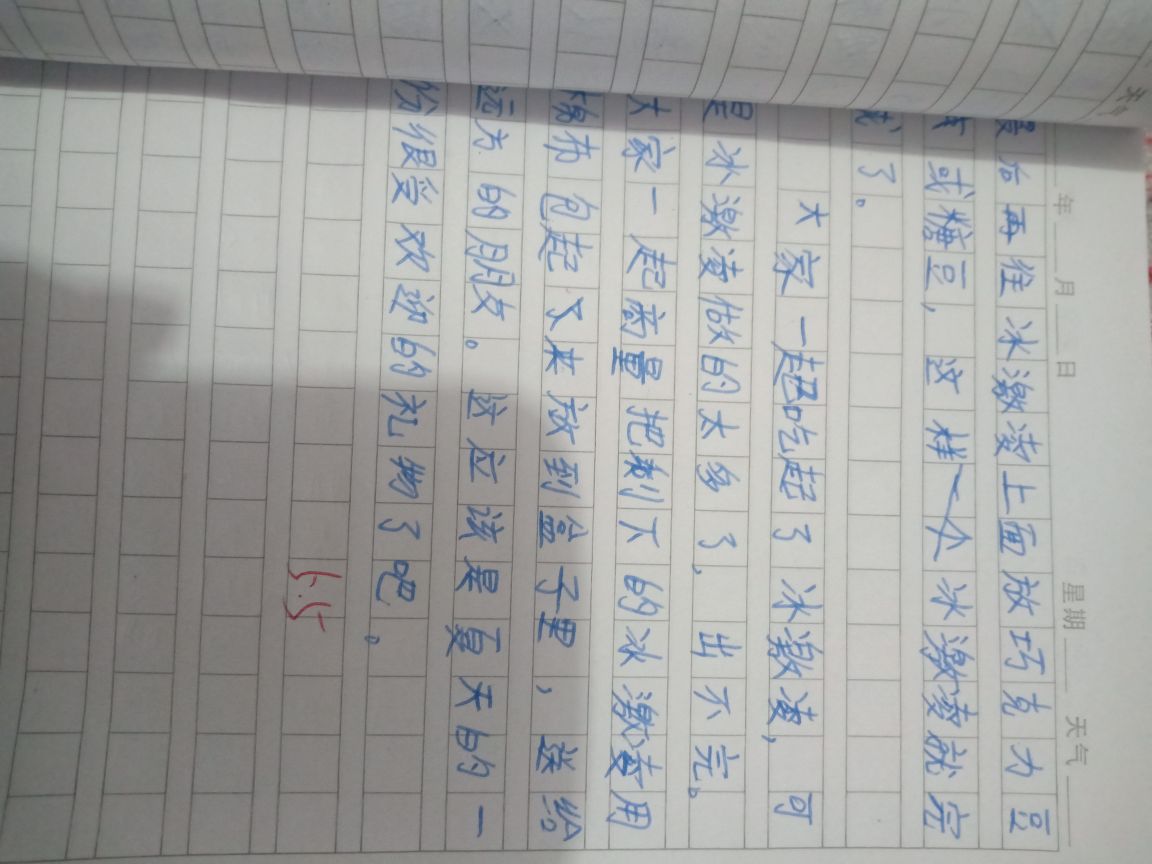 年 月 日 星期 天气
最后再往冰激凌上面放巧克力豆
或糖豆，这样一个冰激凌就完
成了。
大家一起吃起了冰激凌，可
是冰激凌做的太多了，出不完。
大家一起商量把剩下的冰激凌用
棉布包起来放到盒子里，送给
远方的朋友。这应该是夏天的一
份很受欢迎的礼物了吧。